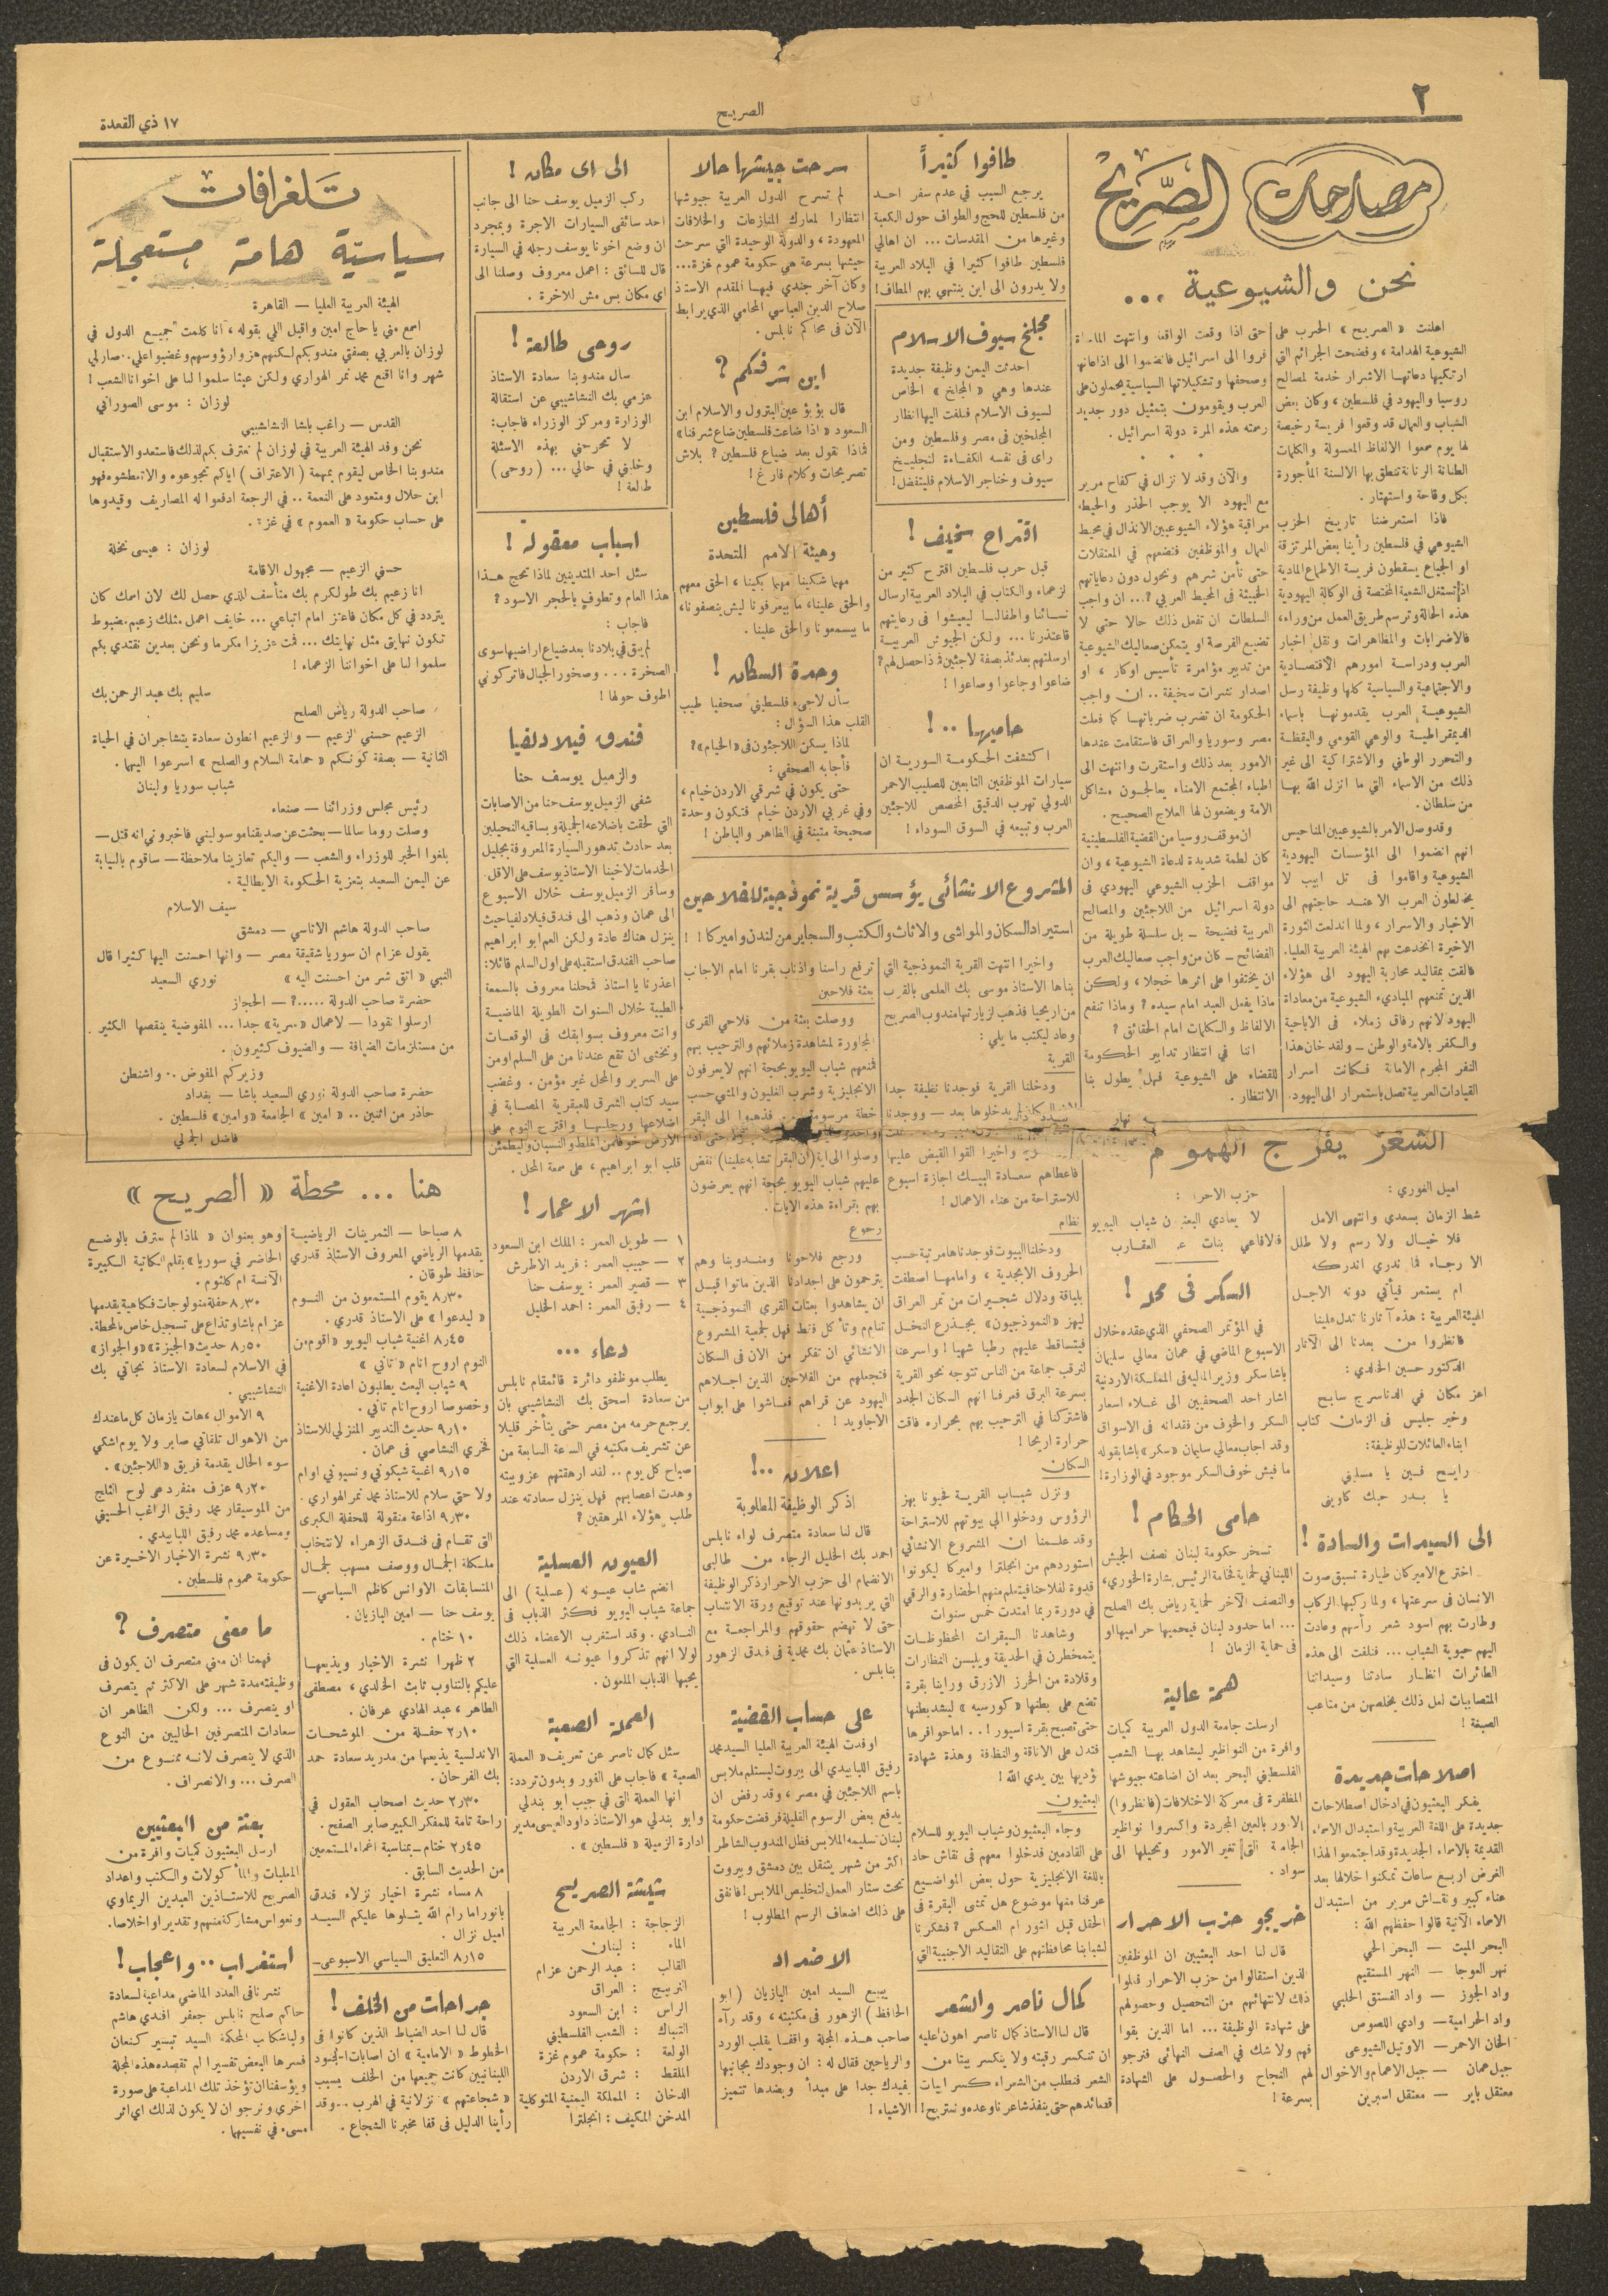 ٢
الصريح
١٧ ذي القعدة
مصارحات الصريح
نحن والشيوعية ...
اعلنت « الصريح » الحرب على
الشيوعية الهدامة ، وفضحت الجرائم التي
ارتكبها دعاتها الاشرار خدمة لمصالح
روسيا واليهود في فلسطين ، وكان بعض
الشباب والعمال قد وقعوا فريسة رخيصة
لها يوم سمعوا الالفاظ المعسولة والكلمات
الطنانة الرنانة تنطق بها الالسنة المأجورة
بكل وقاحة واستهتار .
فاذا استعرضنا تاريخ الحزب
الشيوعي في فلسطين رأينا بعض المرتزقة
او الجياع يسقطون فريسة الاطماع المادية
هذه الحالة وترسم طريق العمل من وراء ،
فالاضرابات والمظاهرات ونقل اخبار
العرب ودراسة امورهم الاقتصادية
والاجتماعية والسياسية كلها وظيفة رسل
الشيوعية العرب يقدمونها باسماء
الديمقراطية والوعي القومي واليقظة
والتحرر الوطني والاشتراكية الى غير
ذلك من الاسماء التي ما انزل الله بها
من سلطان .
وقد وصل الامر بالشيوعيين المناحيس
انهم انضموا الى المؤسسات اليهودية
الشيوعية واقاموا في تل ابيب لا
يخالطون العرب الا عند حاجتهم الى
الاخبار والاسرار ، ولما اندلعت الثورة
الاخيرة انخدعت بهم الهيئة العربية العليا .
فالقت بمقاليد محاربة اليهود الى هؤلاء
الذين تمنعهم المبادىء الشيوعية من معاداة
اليهود لانهم رفاق زملاء في الاباحية
والكفر بالامة والوطن ــ ولقد خان هذا
النفر المجرم الامانة فكانت اسرار
القيادات العربية تصل باستمرار الى اليهود .
حتى اذا وقعت الواقعة وانتهت المأساة
فروا الى اسرائيل فانضموا الى اذاعاتها
وصحفها وتشكيلاتها السياسية يحملون على
العرب ويقومون بتمثيل دور جديد
رسمته هذه المرة دولة اسرائيل .
والآن وقد لا نزال في كفاح مرير
مع اليهود الا يوجب الحذر والحيطة
مراقبة هؤلاء الشيوعيين الانذال في محيط
العمال والموظفين فنضعهم في المعتقلات
حتى نأمن شرهم ونحول دون دعاياتهم
الخبيثة في المحيط العربي ؟ ... ان واجب
السلطات ان تفعل ذلك حالا حتى لا
تضيع الفرصة او يتمكن صعاليك الشيوعية
من تدبير مؤامرة تأسيس اوكار ، او
اصدار نشرات سخيفة .. ان واجب
الحكومة ان تضرب ضرباتها كما فعلت
مصر وسوريا والعراق فاستقامت عندها
الامور بعد ذلك واستقرت وانتهت الى
اطباء المجتمع الامناء يعالجون مشاكل
الامة ويضعون لها العلاج الصحيح .
ان موقف روسيا من القضية الفلسطينية
كان لطمة شديدة لدعاة الشيوعية ، وان
مواقف الحزب الشيوعي اليهودي في
دولة اسرائيل من اللاجئين والمصالح
العربية فضيحة ــ بل سلسلة طويلة من
الفضائح ــ كان من واجب صعاليك العرب
ان يختفوا على اثرها خجلا ، ولكن
ماذا يفعل العبد امام سيده ؟ وماذا تنفع
الالفاظ والكلمات امام الحقائق ؟
اننا في انتظار تدابير الحكومة
للقضاء على الشيوعية فهل يطول بنا
الانتظار .
طافوا كثيراً
يرجع السبب في عدم سفر احد
من فلسطين للحج والطواف حول الكعبة
وغيرها من المقدسات ... ان اهالي
فلسطين طافوا كثيرا في البلاد العربية
ولا يدرون الى اين ينتهي بهم المطاف !
مجلخ سيوف الاسلام
احدثت اليمن وظيفة جديدة
عندها وهي « المجلخ » الخاص
لسيوف الاسلام فلفت اليها انظار
المجلخين في مصر وفلسطين ومن
راى في نفسه الكفاءة لتجليخ
سيوف وخناجر الاسلام فليتفضل !
اقتراح سخيف !
قبل حرب فلسطين اقترح كثير من
الزعماء والكتاب في البلاد العربية ارسال
نسائنا واطفالنا ليعيشوا في رعايتهم
فاعتذرنا ... ولكن الجيوش العربية
ارسلتهم بعدئذ بصفة لاجئين فماذا حصل لهم ؟
ضاعوا وجاعوا وصاعوا !
حاميها .. !
اكتشفت الحكومة السورية ان
سيارات الموظفين التابعين للصليب الاحمر
الدولي تهرب الدقيق المخصص للاجئين
العرب وتبيعه في السوق السوداء !
سرحت جيشها حالا
لم تسرح الدول العربية جيوشها
انتظارا لمعارك المنازعات والخلافات
المعهودة ، والدولة الوحيدة التي سرحت
جيشها بسرعة هي حكومة عموم غزة ...
وكان آخر جندي فيها المقدم الاستاذ
صلاح الدين العباسي المحامي الذي يرابط
الآن في محاكم نابلس .
اين شرفكم ؟
قال بؤبؤ عين البترول والاسلام ابن
السعود « اذا ضاعت فلسطين ضاع شرفنا »
فماذا نقول بعد ضياع فلسطين ؟ بلاش
تصريحات وكلام فارغ !
أهالي فلسطين
وهيئة الامم المتحدة
مهما شكينا مهما بكينا ، الحق معهم
والحق علينا ، ما بيعرفونا ليش بنصفونا ،
ما بيسمعونا والحق علينا .
وحدة السكان !
سأل لاجىء فلسطيني صحفيا طيب
القلب هذا السؤال :
لماذا يسكن اللاجئون في « الخيام » ؟
فأجابه الصحفي :
حتى يكون في شرقي الاردن خيام ،
وفي غربي الاردن خيام فتكون وحدة
صحيحة متينة في الظاهر والباطن !
الى اى مكان !
ركب الزميل يوسف حنا الى جانب
احد سائقي السيارات الاجرة وبمجرد
ان وضع اخونا يوسف رجله في السيارة
قال للسائق : اعمل معروف وصلنا الى
اي مكان بس مش للاخرة .
روحي طالعة !
سال مندوبنا سعادة الاستاذ
عزمي بك النشاشيبي عن استقالة
الوزارة ومركز الوزراء فاجاب :
لا تحرحني بهذه الاسئلة
وخليني في حالي ... ( روحي )
طالعة !
اسباب معقولة !
سئل احد المتدينين لماذا تحج هذا
هذا العام وتطوف بالحجر الاسود ؟
فاجاب :
لم يبق في بلادنا بعد ضياع اراضيها سوى
الصخرة ... وصخور الجبال فاتركوني
اطوف حولها !
فندق فيلادلفيا
والزميل يوسف حنا
شفي الزميل يوسف حنا من الاصابات
التي لحقت باضلاعه الجميلة وبساقيه النحيلين
بعد حادث تدهور السيارة المعروفة بجليل
الخدمات لاخينا الاستاذ يوسف على الاقل .
وسافر الزميل يوسف خلال الاسبوع
الى عمان وذهب الى فندق فيلادلفيا حيث
ينزل هناك عادة ولكن العم ابو ابراهيم
صاحب الفندق استقبله على اول السلم قائلا :
اعذرنا يا استاذ فمحلنا معروف بالسمعة
الطيبة خلال السنوات الطويلة الماضية
وانت معروف بسوابقك في الوقعات
ونخشى ان تقع عندنا من على السلم او من
على السرير والمحل غير مؤمن . وغضب
سيد كتاب الشرق للعبقرية المصابة في
اضلاعها ورجليها واقترح النوم على
الارض خوفا من الغلط والنسيان وليطمئن
قلب ابو ابراهيم ، على سمعة المحل .
تلغرافات
سياسية هامة مستعجلة
الهيئة العربية العليا — القاهرة
اسمع مني يا حاج امين واقبل اللي بقوله ، انا كلمت جميع الدول في
لوزان بالعربي بصفتي مندوبكم لكنهم هزوا رؤوسهم وغضبوا علي .. صار لي
شهر وانا اقنع محمد نمر الهواري ولكن عبثا سلموا لنا على اخواننا الشعب !
لوزان : موسى الصوراني
القدس — راغب باشا النشاشيبي
نحن وفد الهيئة العربية في لوزان لم نعترف بكم لذلك فاستعدوا لاستقبال
مندوبنا الخاص ليقوم بمهمة ( الاعتراف ) اياكم تجوعوه والا تعطشوه فهو
ابن حلال ومتعود على النعمة .. في الرجعة ادفعوا له المصاريف وقيدوها
على حساب حكومة « العموم » في غزة .
لوزان : عيسى نخلة
حسني الزعيم — مجهول الاقامة
انا زعيم بك طولكرم بك متأسف للذي حصل لك لان اسمك كان
يتردد في كل مكان فاعتز امام اتباعي ... خايف اعمل مثلك زعيم مضبوط
تكون نهايتي مثل نهايتك ... فمت عزيزا مكرما ونحن بعدين نقتدي بكم
سلموا لنا على اخواننا الزعماء !
سليم بك عبد الرحمن بك
صاحب الدولة رياض الصلح
الزعيم حسني الزعيم — والزعيم انطون سعادة يتشاجران في الحياة
الثانية — بصفة كونكم « حمامة السلام والصلح » اسرعوا اليهما .
شباب سوريا ولبنان
رئيس مجلس وزرائنا — صنعاء
وصلت روما سالما — بحثت عن صديقنا موسوليني فاخبروني انه قتل —
بلغوا الخبر للوزراء والشعب — واليكم تعازينا ملاحظة — ساقوم بالنيابة
عن اليمن السعيد بتعزية الحكومة الايطالية .
سيف الاسلام
صاحب الدولة هاشم الاتاسي — دمشق
يقول عزام ان سوريا شقيقة مصر — وانها احسنت اليها كثيرا قال
النبي « اتق شر من احسنت اليه » نوري السعيد
حضرة صاحب الدولة .....؟ — الحجاز
ارسلوا نقودا — لاعمال « سرية » جدا ... المفوضية ينقصها الكثير
من مستلزمات الضيافة — والضيوف كثيرون .
وزيركم المفوض .. واشنطن
حضرة صاحب الدولة نوري السعيد باشا — بغداد
حاذر من اثنين .. « امين » الجامعة « وامين » فلسطين .
فاضل الجمالي
المشروع الانشائي يؤسس قرية نموذجية للفلاحين
استيراد السكان والمواشي والاثاث والكتب والسجاير من لندن واميركا ! !
واخيرا انتهت القرية النموذجية التي
بناها الاستاذ موسى بك العلمي بالقرب
من اريحيا فذهب لزيارتها مندوب الصريح
وعاد ليكتب ما يلي :
القرية
ودخلنا القرية فوجدنا نظيفة جدا
واخيرا القوا القبض عليها
فاعطاهم سعادة البيك اجازة اسبوع
للاستراحة من عناء الاعمال !
نظام
ودخلنا البيوت فوجدناها مرتبة حسب
الحروف الابجدية ، وامامها اصطفت
بلباقة ودلال شجيرات من تمر العراق
ليهز « النموذجيون » بجذع النخل
فيتساقط عليهم رطبا شهيا ! واسرعنا
لنرقب جماعة من الناس تتوجه نحو القرية
بسرعة البرق فعرفنا انهم السكان الجدد
فاشتركنا في الترحيب بهم بحراره فاقت
حرارة اريحا !
السكان
ونزل شباب القرية فحيونا بهز
الرؤوس ودخلوا الى بيوتهم للاستراحة
وقد علمنا ان المشروع الانشائي
استوردهم من انجلترا واميركا ليكونوا
قدوة لفلاحنا فيتعلم منهم الحضارة والرقي
في دورة ربما امتدت خمس سنوات
وشاهدنا البقرات المحظوظات
يتمخطرن في الحديقة ويلبسن النظارات
وقلادة من الخرز الازرق وراينا بقرة
تضع على بطنها « كورسيه » ليشد بطنها
حتى تصبح بقرة اسبور ! .. اما حوافرها
فتدل على الاناقة والنظافة وهذة شهادة
نؤديها بين يدي الله !
البعثيون
وجاء البعثيون وشباب اليويو للسلام
على القادمين فدخلوا معهم في نقاش حاد
باللغة الانجليزية حول بعض المواضيع
عرفنا منها موضوع هل تمشي البقرة في
الحقل قبل الثور ام العكس ؟ فشكرنا
لشبابنا محافظتهم على التقاليد الاجنبية التي
ترفع راسنا واذناب بقرنا امام الاجانب
بعثة فلاحين
ووصلت بعثة من فلاحي القرى
المجاورة لمشاهدة زملائهم والترحيب بهم
فمنعهم شباب اليويو بحجة انهم لا يعرفون
الانجليزية وشرب الغليون والمشي حسب
خطة مرسومة ... فذهبوا الى البقر
وصلوا الى اية ( ان البقر تشابه علينا ) نفض
عليهم شباب اليويو بحجة انهم يعرضون
بهم بقراءة هذه الايات .
رجوع
ورجع فلاحونا ومندوبنا وهم
يترحمون على اجدادنا الذين ماتوا قبل
ان يشاهدوا بعثات القرى النموذجية
تنام وتأكل فقط فهل لجمعية المشروع
الانشائي ان تفكر من الان في السكان
فتجعلهم من الفلاحين الذين اجلاهم
اليهود عن قراهم فعاشوا على ابواب
الاجاويد !
الشعر يفرج الهموم
اميل الغوري :
شط الزمان بسعدي وانتهى الامل
فلا خيال ولا رسم ولا طلل
الا رجاء فما ندري اندركه
ام يستمر فيأتي دونه الاجل
الهيئة العربية : هذه آثارنا تدل علينا
فانظروا من بعدنا الى الآثار
الدكتور حسين الخالدي :
اعز مكان في الدنا سرج سابح
وخير جليس في الزمان كتاب
ابناء العائلات للوظيفة :
رايح فين يا مسليني
يا بدر حبك كاويني
الى السيدات والسادة !
اخترع الاميركان طيارة تسبق صوت
الانسان في سرعتها ، ولما ركبها الركاب
وطارت بهم اسود شعر رأسهم وعادت
اليهم حيوية الشباب ... فنلفت الى هذه
الطائرات انظار سادتنا وسيداتنا
المتصابيات لعل ذلك يخلصهن من متاعب
الصبغة !
اصلاحات جديدة
يفكر البعثيون في ادخال اصطلاحات
جديدة على اللغة العربية واستبدال الاسماء
القديمة بالاسماء الجديدة وقد اجتمعوا لهذا
الغرض اربع ساعات تمكنوا خلالها بعد
عناء كبير ونقاش مرير من استبدال
الاسماء الآتية قالوا حفظهم الله :
البحر الميت — البحر الحي
نهر العوجا — النهر المستقيم
واد الجوز — واد الفستق الحلبي
واد الحرامية — وادي اللصوص
الخان الاحمر — الاوتيل الشيوعي
جبل عمان — جبل الاعمام والاخوال
معتقل باير — معتقل اسبرين
حزب الاحرار :
لا يعادي البعثيون شباب اليويو
فالافاعي بنات عم العقارب
السكر في محله !
في المؤتمر الصحفي الذي عقده خلال
الاسبوع الماضي في عمان معالي سليمان
باشا سكر وزير المالية في المملكة الاردنية
اشار احد الصحفيين الى غلاء اسعار
السكر والخوف من فقدانه في الاسواق
وقد اجاب معالي سليمان « سكر » باشا بقوله
ما فيش خوف السكر موجود في الوزارة !
حامي الحكام !
تسخر حكومة لبنان نصف الجيش
اللبناني لحماية فخامة الرئيس بشارة الخوري ،
والنصف الآخر لحماية رياض بك الصلح
... اما حدود لبنان فيحميها حراميها او
في حماية الزمان !
همة عالية
ارسلت جامعة الدول العربية كميات
وافرة من النواظير ليشاهد بها الشعب
الفلسطيني البحر بعد ان اضاعته جيوشها
المظفرة في معركة الاختلافات ( فانظروا )
الامور بالعين المجردة واكسروا نواظير
الجامعة التي تغير الامور وتحيلها الى
سواد .
خريجو حزب الاحرار
قال لنا احد البعثيين ان الموظفين
الذين استقالوا من حزب الاحرار فعلوا
ذلك لانتهائهم من التحصيل وحصولهم
على شهادة الوظيفة ... اما الذين بقوا
فهم ولا شك في الصف النهائي فنرجو
لهم النجاح والحصول على الشهادة
بسرعة !
كمال ناصر والشعر
قال لنا الاستاذ كمال ناصر اهون عليه
ان تنكسر رقبته ولا ينكسر بيتا من
الشعر فنطلب من الشعراء كسر ابيات
قصائدهم حتى ينفذ شاعرنا وعده ونستريح !
اعلان .. !
اذكر الوظيفة المطلوبة
قال لنا سعادة متصرف لواء نابلس
احمد بك الخليل الرجاء من طالبي
الانضمام الى حزب الاحرار ذكر الوظيفة
التي يريدونها عند توقيع ورقة الانتساب
حتى لا تهضم حقوقهم والمراجعة مع
الاستاذ عثمان بك محمدية في فندق الزهور
بنابلس .
على حساب القضية
اوفدت الهيئة العربية العليا السيد محمد
رفيق اللبابيدي الى بيروت ليستلم ملابس
باسم اللاجئين في مصر ، وقد رفض ان
يدفع بعض الرسوم القليلة فرفضت حكومة
لبنان تسليمه الملابس فظل المندوب الشاطر
اكثر من شهر يتنقل بين دمشق وبيروت
تحت ستار العمل لتخليص الملابس ! فانفق
على ذلك اضعاف الرسم المطلوب !
الاضداد
يبيع السيد امين اليازيان ( ابو
الحافظ ) الزهور في مكتبته ، وقد رآه
صاحب هذه المجلة واقفا يقلب الورد
والرياحين فقال له : ان وجودك بجانبها
يفيدك جدا على مبدأ وبضدها تتميز
الاشياء !
اشهر الاعمار !
١ — طويل العمر : الملك ابن السعود
٢ — حبيب العمر : فريد الاطرش
٣ — قصير العمر : يوسف حنا
٤ — رفيق العمر : احمد الخليل
دعاء ...
يطلب موظفو دائرة قائمقام نابلس
من سعادة اسحق بك النشاشيبي بان
يرجع حرمه من مصر حتى يتأخر قليلا
عن تشريف مكتبه في الساعة السابعة من
صباح كل يوم .. لقد ارهقتهم عزوبيته
وهدت اعصابهم فهل ينزل سعادته عند
طلب هؤلاء المرهقين ؟
العيون العسلية
انضم شاب عيونه ( عسلية ) الى
جماعة شباب اليويو فكثر الذباب في
النادي . وقد استغرب الاعضاء ذلك
لولا انهم تذكروا عيونه العسلية التي
يحبها الذباب الملعون .
العملة الصعبة
سئل كمال ناصر عن تعريف « العملة
الصعبة » فاجاب على الفور وبدون تردد :
انها العملة التي في جيب ابو بندلي
وابو بندلي هو الاستاذ داود العيسى مدير
ادارة الزميلة « فلسطين » .
شيشة الصريح
الزجاجة : الجامعة العربية
الماء : لبنان
القالب : عبد الرحمن عزام
النربيج : العراق
الراس : ابن السعود
التنباك : الشعب الفلسطيني
الولعة : حكومة عموم غزة
الملقط : شرق الاردن
الدخان : المملكة اليمنية المتوكلية
المدخن المكيف : انجلترا
هنا ... محطة « الصريح »
٨ صباحا — التمرينات الرياضية
يقدمها الرياضي المعروف الاستاذ قدري
حافظ طوقان .
٨,٣٠ يقوم المستمعون من النوم
« ليدعوا » على الاستاذ قدري .
٨,٤٥ اغنية شباب اليويو « اقوم من
النوم اروح انام « تاني »
٩ شباب البعث يطلبون اعادة الاغنية
وخصوصا اروح انام تاني .
٩,١٠ حديث التدبير المنزلي للاستاذ
فخري النشاصي في عمان .
٩,١٥ اغنية شبكوني ونسيوني اوام
ولا حتى سلام للاستاذ محمد نمر الهواري .
٩,٣٠ اذاعة منقولة للحفلة الكبرى
التي تقام في فندق الزهراء لانتخاب
ملكة الجمال ووصف مسهب لجمال
المتسابقات الاوانس كاظم السياسي —
يوسف حنا — امين اليازيان .
١٠ ختام .
٢ ظهرا نشرة الاخبار ويذيعها
عليكم بالتناوب ثابت الخالدي ، مصطفى
الطاهر ، عبد الهادي عرفان .
٢,١٠ حفلة من الموشحات
الاندلسية يذيعها من مدريد سعادة حمد
بك الفرحان .
٢,٣٠ حديث اصحاب العقول في
راحة تامة للمفكر الكبير صابر الصفح .
٢,٤٥ ختام — بمناسبة اغماء المستمعين
من الحديث السابق .
٨ مساء نشرة اخبار نزلاء فندق
بانوراما رام الله يتلوها عليكم السيد
اميل نزال .
٨,١٥ التعليق السياسي الاسبوعي —
وهو بعنوان « لماذا لم نعترف بالوضع
الحاضر في سوريا » بقلم الكاتبة الكبيرة
الآنسة ام كلثوم .
٨,٣٠ حفلة منولوجات فكاهية يقدمها
عزام باشا وتذاع على تسجيل خاص بالمحطة .
٨,٥٠ حديث « الجيزة » « والجواز »
في الاسلام لسعادة الاستاذ نجاتي بك
النشاشيبي .
٩ الأموال ، هات يا زمان كل ما عندك
من الاهوال تلقاتي صابر ولا يوم اشكي
سوء الحال يقدمة فريق « اللاجئين » .
٩,٢٠ عزف منفرد على لوح الثلج
من الموسيقار محمد رفيق الراغب الحسيني
ومساعده محمد رفيق اللبابيدي .
٩,٣٠ نشرة الاخبار الاخيرة عن
حكومة عموم فلسطين .
ما معنى متصرف ؟
فهمنا ان معنى متصرف ان يكون في
وظيفته مدة شهر على الاكثر ثم يتصرف
او ينصرف ... ولكن الظاهر ان
سعادات المتصرفين الحاليين من النوع
الذي لا ينصرف لانه ممنوع من
الصرف ... والانصراف .
بعثة من البعثيين
ارسل البعثيون كميات وافرة من
المعلبات والمأكولات والكتب واعداد
الصريح للاستاذين العبدين الريماوي
ونعواس مشاركة منهم وتقدير او اخلاصا .
استغراب .. واعجاب !
نشرنا في العدد الماضي مداعبة لسعادة
حاكم صلح نابلس جعفر افندي هاشم
ولباشكاتب المحكمة السيد تيسير كنعان
فسرها البعض تفسيرا لم تقصده هذه المجلة
ويؤسفنا ان تؤخذ تلك المداعبة على صورة
اخرى ونرجو ان لا يكون لذلك اي اثر
سيء في نفسيهما .
جراحات من الخلف !
قال لنا احد الضباط الذين كانوا في
الخطوط « الامامية » ان اصابات الجنود
اللبنانيين كانت جميعها من الخلف بسبب
« شجاعتهم » نزلانية في الهرب .. وقد
رأينا الدليل في قفا مخبرنا الشجاع .